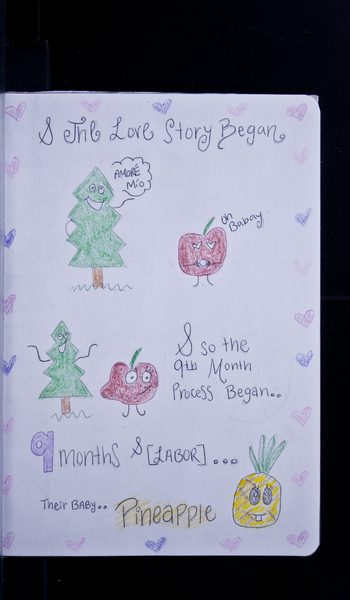 & The Love Story Began
AMORÉ
Mío
Oh
Babay
& so the
9th Month
Process Began..
9 months & [LABOR]...
Their BABY..
Pineapple